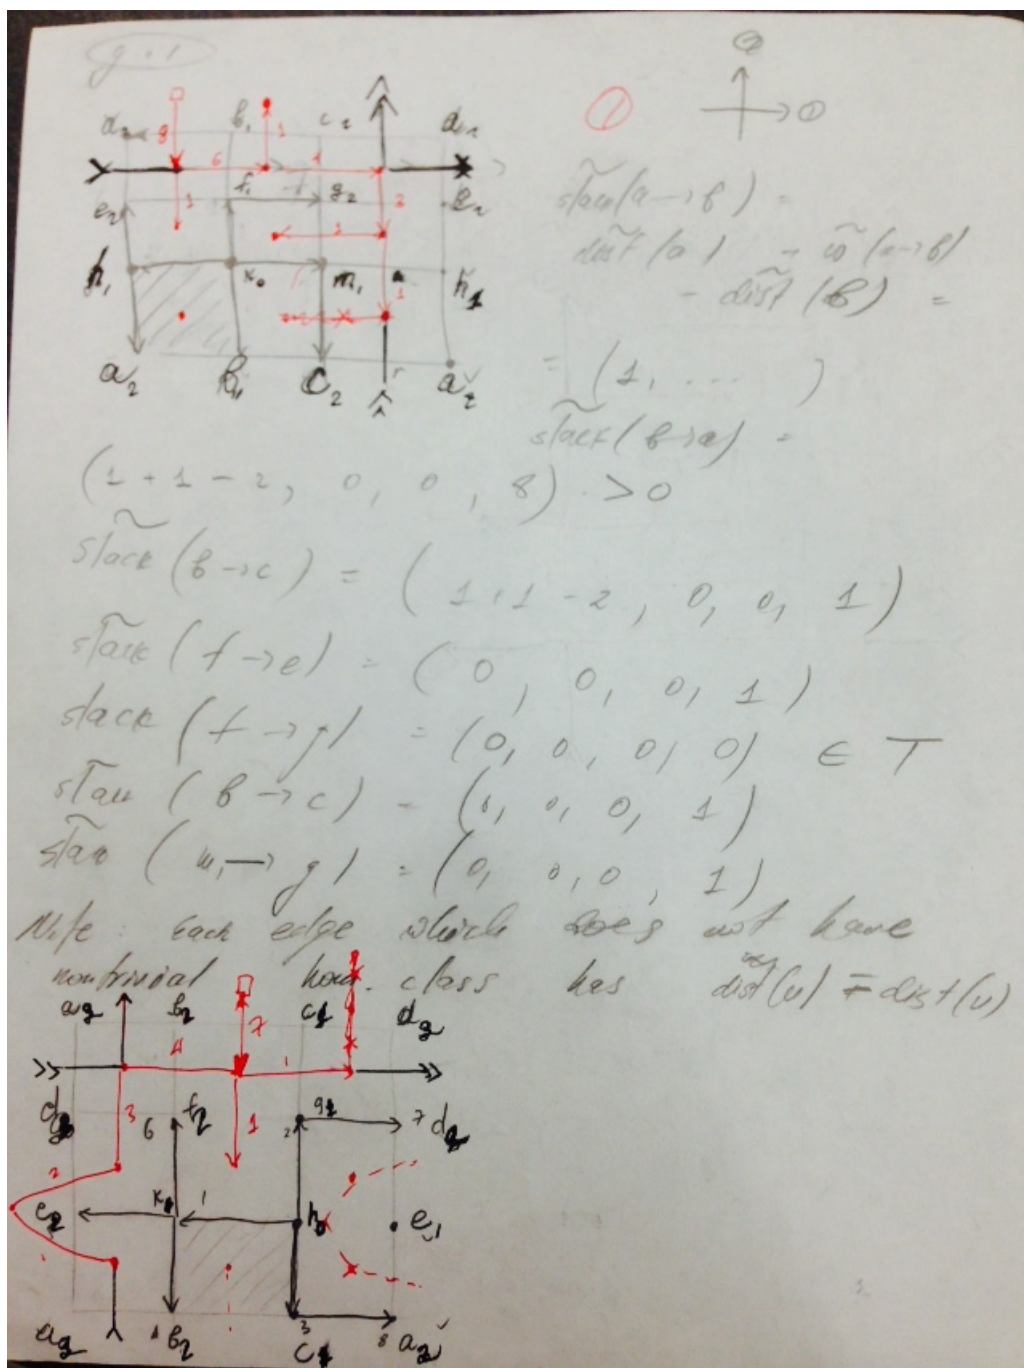 g = 1
②
①
①
d₂ 8 b₁ 1 c₂ d₂
6 1
e₂ 1 f₁ g₂ 2 e₂
1
h₁ k₀ m₁ 1 h₁
a₂ b₁ c₂ a₂
slack(a→b) =
dist(a) - ω(a→b)
- dist(b) =
= (1, ... )
slack(b→a) =
(1+1-2, 0, 0, 8) > 0
slack(b→c) = (1+1-2, 0, 0, 1)
slack(f→e) = (0, 0, 0, 1)
slack(f→g) = (0, 0, 0, 0) ∈ T
slack(b→c) = (0, 0, 0, 1)
slack(m₁→g) = (0, 0, 0, 1)
Note: each edge which does not have
nontrivial hom. class has dist(u) = dist(v)
a₂ b₂ c₁ d₂
4 7 1
d₂ 3 6 f₂ 1 2 g₂ 7 d₂
2
e₂ k₁ 1 h₀ e₁
a₂ b₂ 3 c₁ 8 a₂